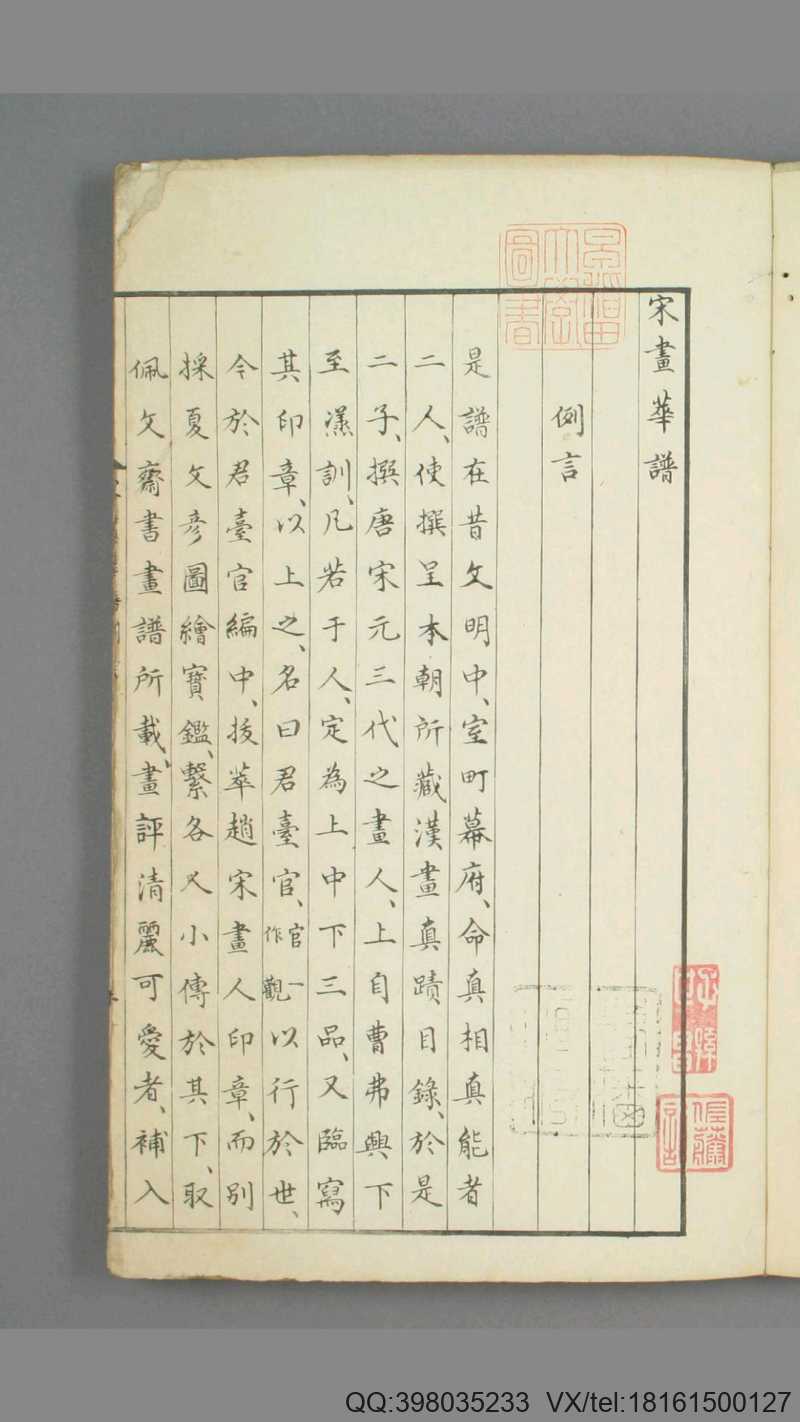 宋畫華譜
例言
是譜在昔文明中、室町幕府、命真相真能者
二人、使撰呈本朝所藏漢畫真蹟目錄、於是
二子、撰唐宋元三代之畫人、上自曹弗興下
至漾訓、凡若于人、定為上中下三品、又臨寫
其印章、以上之、名曰君臺官、官一作觀以行於世、
今於君臺官編中、拔萃趙宋畫人印章、而別
採夏文彥圖繪寶鑑、繫各人小傳於其下、取
佩文齋書畫譜所載、畫評清麗可愛者、補入
QQ:398035233 VX/tel:18161500127